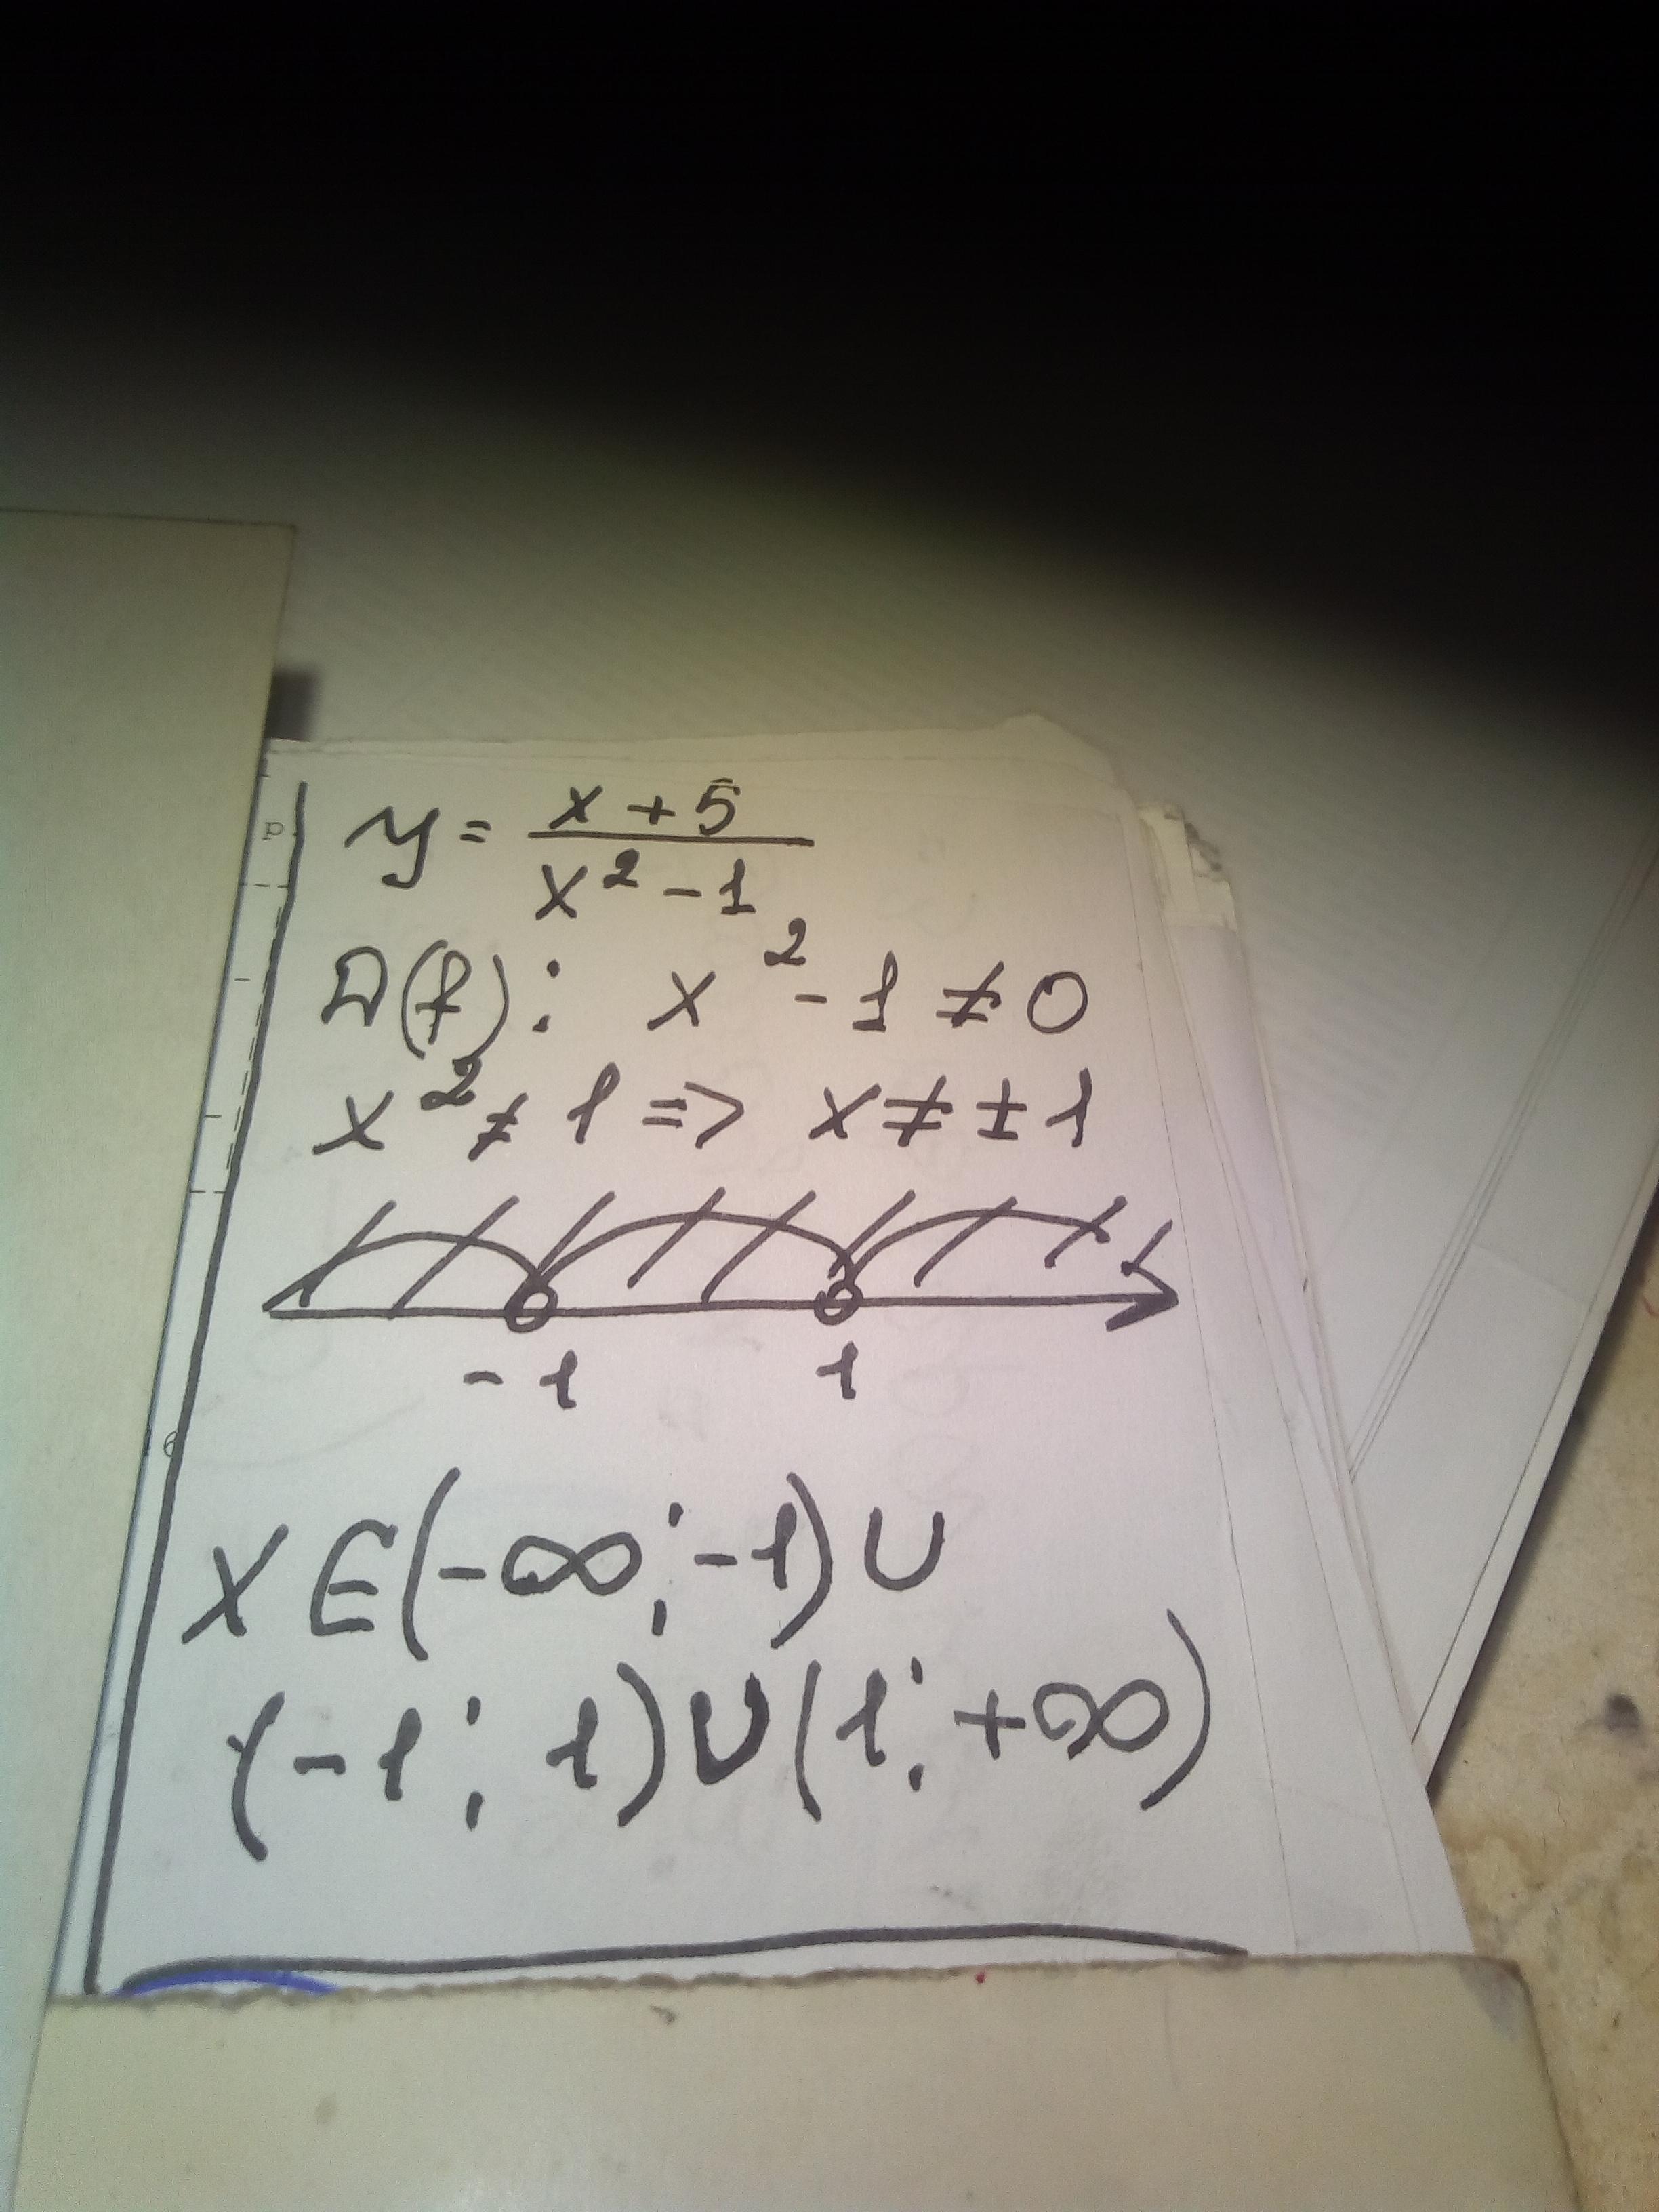 y = x + 5 / x² - 1
D(f): x² - 1 ≠ 0
x² ≠ 1 => x ≠ ± 1
-1 1
x ∈ (-∞; -1) ∪
(-1; 1) ∪ (1; +∞)